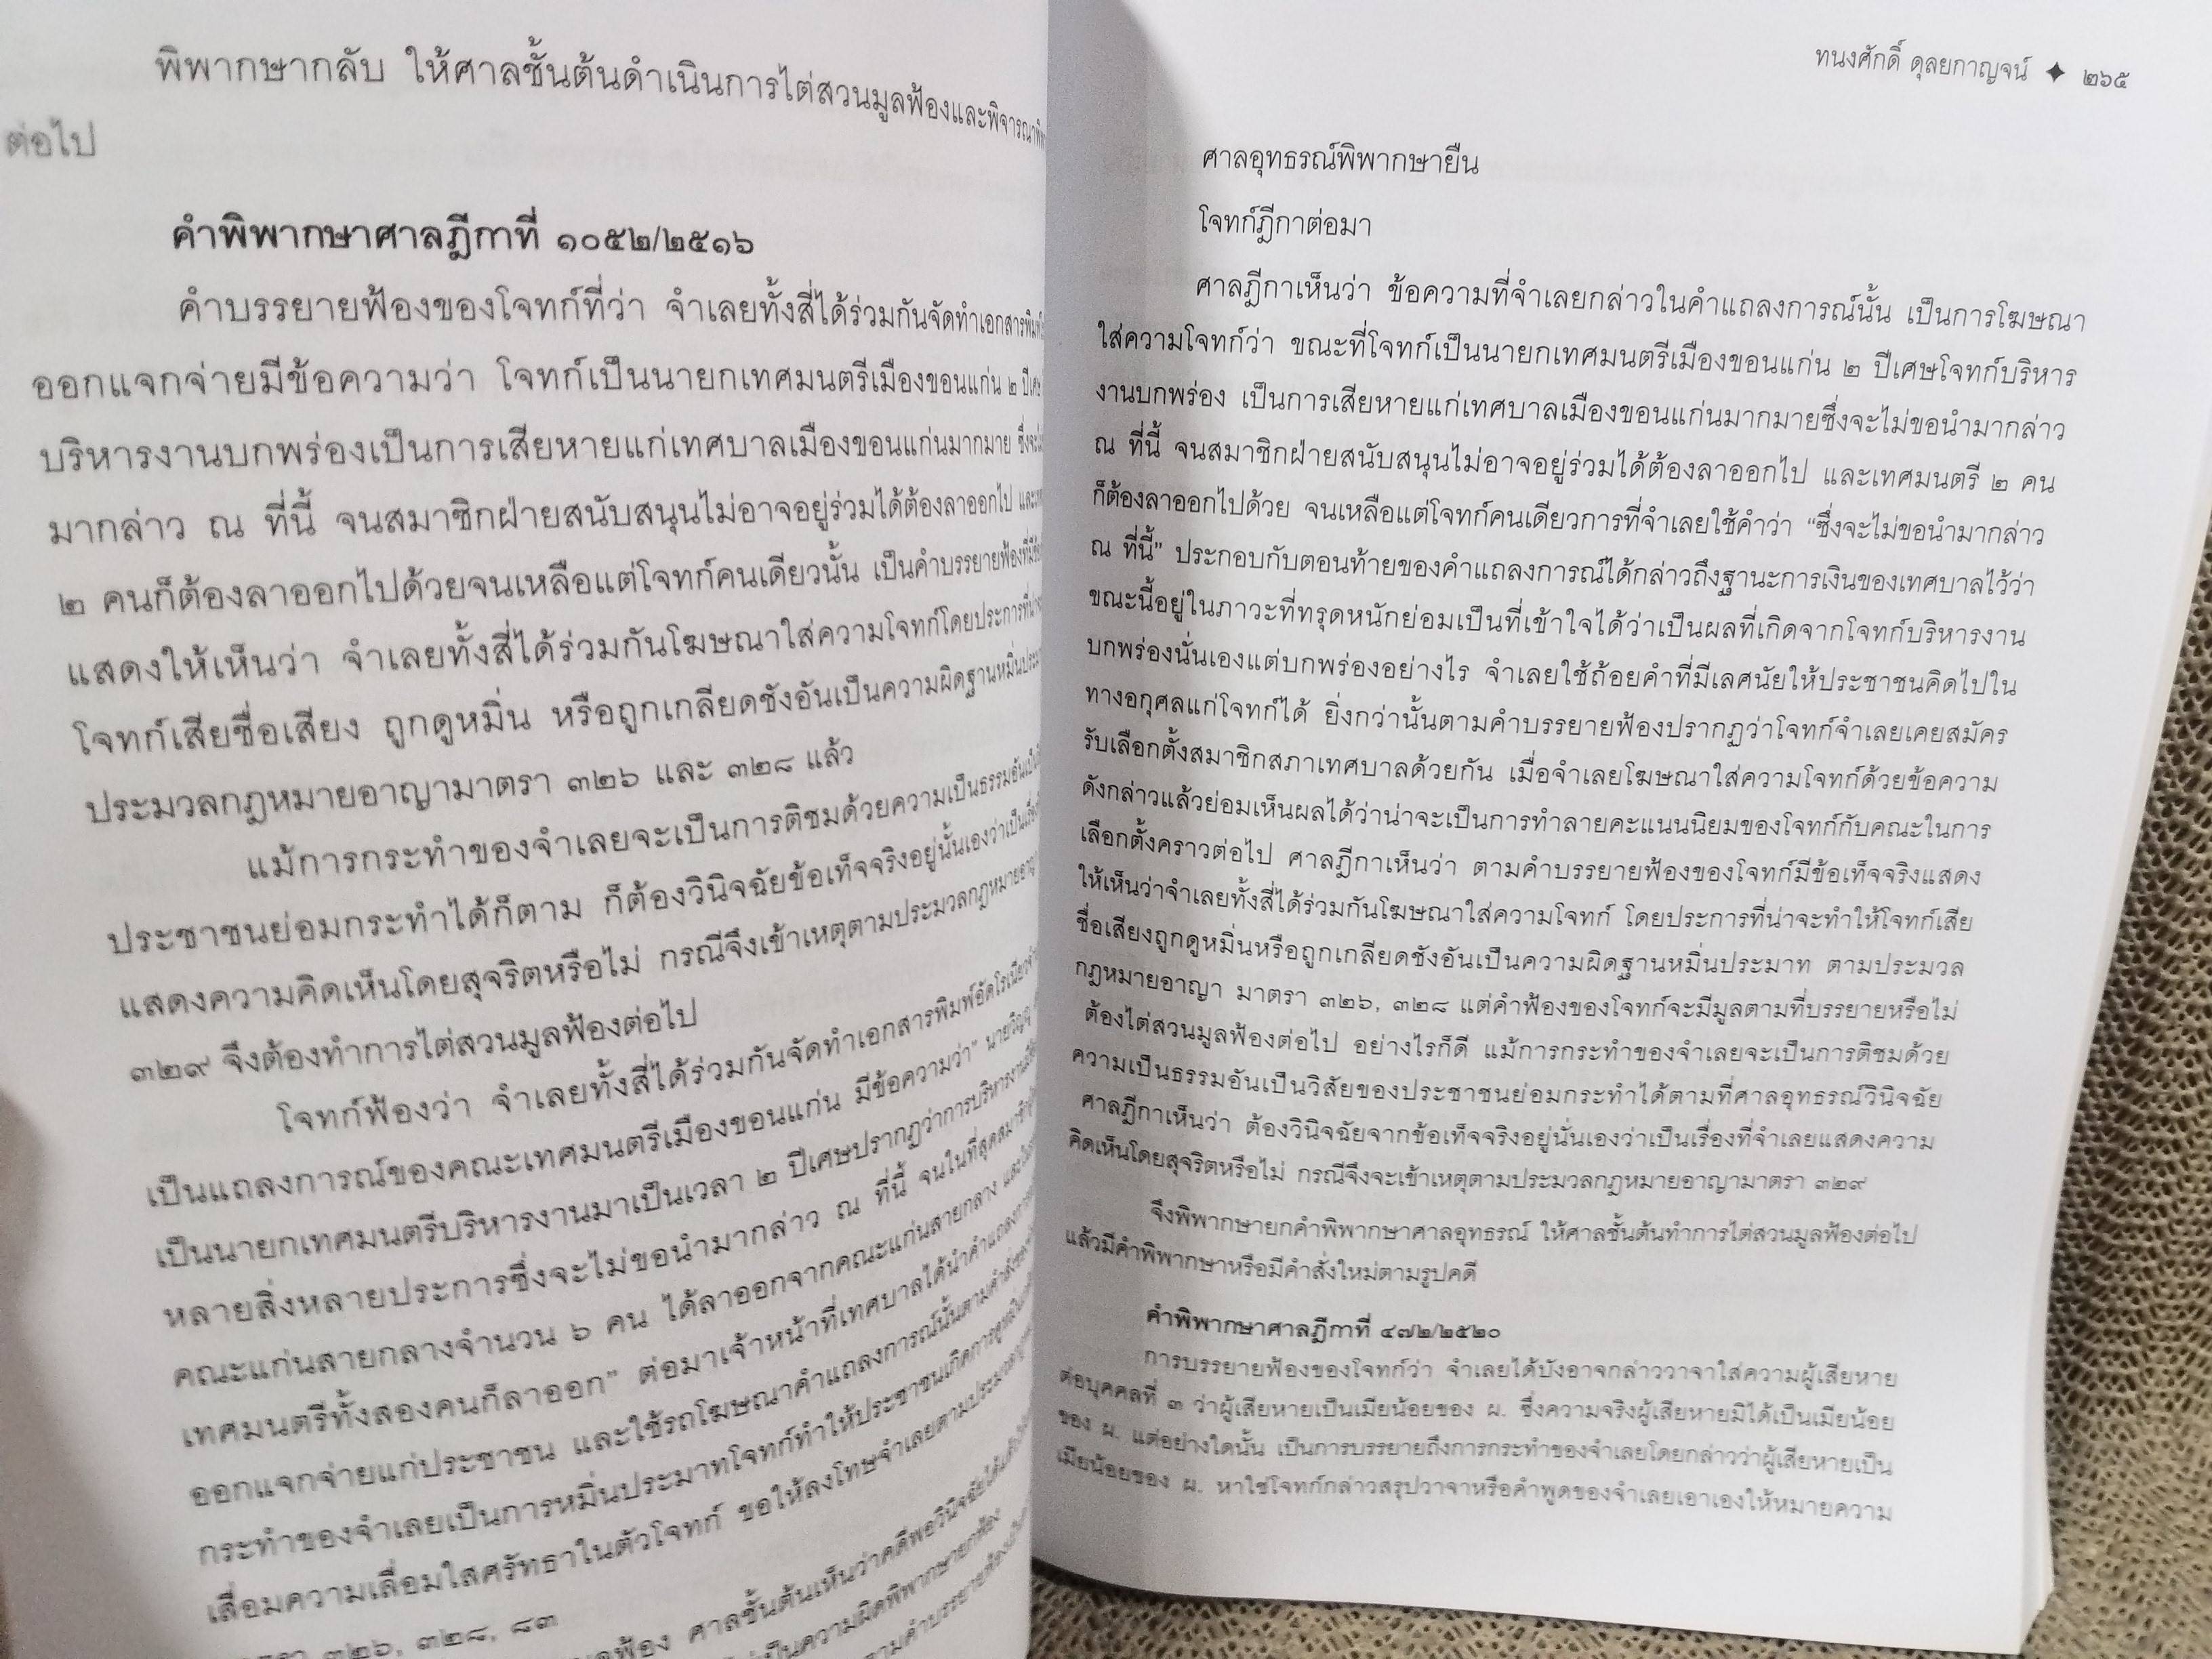 พิพากษากลับ ให้ศาลชั้นต้นดำเนินการไต่สวนมูลฟ้องและพิจารณา
ต่อไป
คำพิพากษาศาลฎีกาที่ ๑๐๕๒/๒๕๑๖
คำบรรยายฟ้องของโจทก์ที่ว่า จำเลยทั้งสี่ได้ร่วมกันจัดทำเอกสารพิมพ์
ออกแจกจ่ายมีข้อความว่า โจทก์เป็นนายกเทศมนตรีเมืองขอนแก่น ๒ ปีเศษ
บริหารงานบกพร่องเป็นการเสียหายแก่เทศบาลเมืองขอนแก่นมากมาย ซึ่งจะ
มากล่าว ณ ที่นี้ จนสมาชิกฝ่ายสนับสนุนไม่อาจอยู่ร่วมได้ต้องลาออกไป
๒ คนก็ต้องลาออกไปด้วยจนเหลือแต่โจทก์คนเดียวนั้น เป็นคำบรรยายฟ้องที่มี
แสดงให้เห็นว่า จำเลยทั้งสี่ได้ร่วมกันโฆษณาใส่ความโจทก์โดยประการที่
โจทก์เสียชื่อเสียง ถูกดูหมิ่น หรือถูกเกลียดชังอันเป็นความผิดฐานหมิ่น
ประมวลกฎหมายอาญามาตรา ๓๒๖ และ ๓๒๘ แล้ว
แม้การกระทำของจำเลยจะเป็นการติชมด้วยความเป็นธรรมอันเป็น
ประชาชนย่อมกระทำได้ก็ตาม ก็ต้องวินิจฉัยข้อเท็จจริงอยู่นั้นเองว่าเป็น
แสดงความคิดเห็นโดยสุจริตหรือไม่ กรณีจึงเข้าเหตุตามประมวลกฎหมาย
๓๒๙ จึงต้องทำการไต่สวนมูลฟ้องต่อไป
โจทก์ฟ้องว่า จำเลยทั้งสี่ได้ร่วมกันจัดทำเอกสารพิมพ์อัดโรเนียว
เป็นแถลงการณ์ของคณะเทศมนตรีเมืองขอนแก่น มีข้อความว่า" นาย
เป็นนายกเทศมนตรีบริหารงานมาเป็นเวลา ๒ ปีเศษปรากฏว่าการบริหารงาน
หลายสิ่งหลายประการซึ่งจะไม่ขอนำมากล่าว ณ ที่นี้ จนในที่สุดสมาชิก
คณะแก่นสายกลางจำนวน ๖ คน ได้ลาออกจากคณะแก่นสายกลาง และ
เทศมนตรีทั้งสองคนก็ลาออก" ต่อมาเจ้าหน้าที่เทศบาลได้นำคำแถลงการณ์
ออกแจกจ่ายแก่ประชาชน และใช้รถโฆษณาคำแถลงการณ์นั้นตามคำสั่งของ
กระทำของจำเลยเป็นการหมิ่นประมาทโจทก์ทำให้ประชาชนเกิดการดูหมิ่น
เสื่อมความเลื่อมใสศรัทธาในตัวโจทก์ ขอให้ลงโทษจำเลยตามประมวล
๓๒๖, ๓๒๘, ๘๓
ศาลชั้นต้นเห็นว่าคดีพอวินิจฉัยได้
เป็นความผิดพิพากษายกฟ้อง
ทนงศักดิ์ ดุลยกาญจน์ ✦ ๒๖๕
ศาลอุทธรณ์พิพากษายืน
โจทก์ฎีกาต่อมา
ศาลฎีกาเห็นว่า ข้อความที่จำเลยกล่าวในคำแถลงการณ์นั้น เป็นการโฆษณา
ใส่ความโจทก์ว่า ขณะที่โจทก์เป็นนายกเทศมนตรีเมืองขอนแก่น ๒ ปีเศษโจทก์บริหาร
งานบกพร่อง เป็นการเสียหายแก่เทศบาลเมืองขอนแก่นมากมายซึ่งจะไม่ขอนำมากล่าว
ณ ที่นี้ จนสมาชิกฝ่ายสนับสนุนไม่อาจอยู่ร่วมได้ต้องลาออกไป และเทศมนตรี ๒ คน
ก็ต้องลาออกไปด้วย จนเหลือแต่โจทก์คนเดียวการที่จำเลยใช้คำว่า "ซึ่งจะไม่ขอนำมากล่าว
ณ ที่นี้" ประกอบกับตอนท้ายของคำแถลงการณ์ได้กล่าวถึงฐานะการเงินของเทศบาลไว้ว่า
ขณะนี้อยู่ในภาวะที่ทรุดหนักย่อมเป็นที่เข้าใจได้ว่าเป็นผลที่เกิดจากโจทก์บริหารงาน
บกพร่องนั่นเองแต่บกพร่องอย่างไร จำเลยใช้ถ้อยคำที่มีเลศนัยให้ประชาชนคิดไปใน
ทางอกุศลแก่โจทก์ได้ ยิ่งกว่านั้นตามคำบรรยายฟ้องปรากฏว่าโจทก์จำเลยเคยสมัคร
รับเลือกตั้งสมาชิกสภาเทศบาลด้วยกัน เมื่อจำเลยโฆษณาใส่ความโจทก์ด้วยข้อความ
ดังกล่าวแล้วย่อมเห็นผลได้ว่าน่าจะเป็นการทำลายคะแนนนิยมของโจทก์กับคณะในการ
เลือกตั้งคราวต่อไป ศาลฎีกาเห็นว่า ตามคำบรรยายฟ้องของโจทก์มีข้อเท็จจริงแสดง
ให้เห็นว่าจำเลยทั้งสี่ได้ร่วมกันโฆษณาใส่ความโจทก์ โดยประการที่น่าจะทำให้โจทก์เสีย
ชื่อเสียงถูกดูหมิ่นหรือถูกเกลียดชังอันเป็นความผิดฐานหมิ่นประมาท ตามประมวล
กฎหมายอาญา มาตรา ๓๒๖, ๓๒๘ แต่คำฟ้องของโจทก์จะมีมูลตามที่บรรยายหรือไม่
ต้องไต่สวนมูลฟ้องต่อไป อย่างไรก็ดี แม้การกระทำของจำเลยจะเป็นการติชมด้วย
ความเป็นธรรมอันเป็นวิสัยของประชาชนย่อมกระทำได้ตามที่ศาลอุทธรณ์วินิจฉัย
ศาลฎีกาเห็นว่า ต้องวินิจฉัยจากข้อเท็จจริงอยู่นั่นเองว่าเป็นเรื่องที่จำเลยแสดงความ
คิดเห็นโดยสุจริตหรือไม่ กรณีจึงจะเข้าเหตุตามประมวลกฎหมายอาญามาตรา ๓๒๙
จึงพิพากษายกคำพิพากษาศาลอุทธรณ์ ให้ศาลชั้นต้นทำการไต่สวนมูลฟ้องต่อไป
แล้วมีคำพิพากษาหรือมีคำสั่งใหม่ตามรูปคดี
คำพิพากษาศาลฎีกาที่ ๔๗๒/๒๕๒๐
การบรรยายฟ้องของโจทก์ว่า จำเลยได้บังอาจกล่าววาจาใส่ความผู้เสียหาย
ต่อบุคคลที่ ๓ ว่าผู้เสียหายเป็นเมียน้อยของ ผ. ซึ่งความจริงผู้เสียหายมิได้เป็นเมียน้อย
ของ ผ. แต่อย่างใดนั้น เป็นการบรรยายถึงการกระทำของจำเลยโดยกล่าวว่าผู้เสียหายเป็น
เมียน้อยของ ผ. หาใช่โจทก์กล่าวสรุปวาจาหรือคำพูดของจำเลยเอาเองให้หมายความ